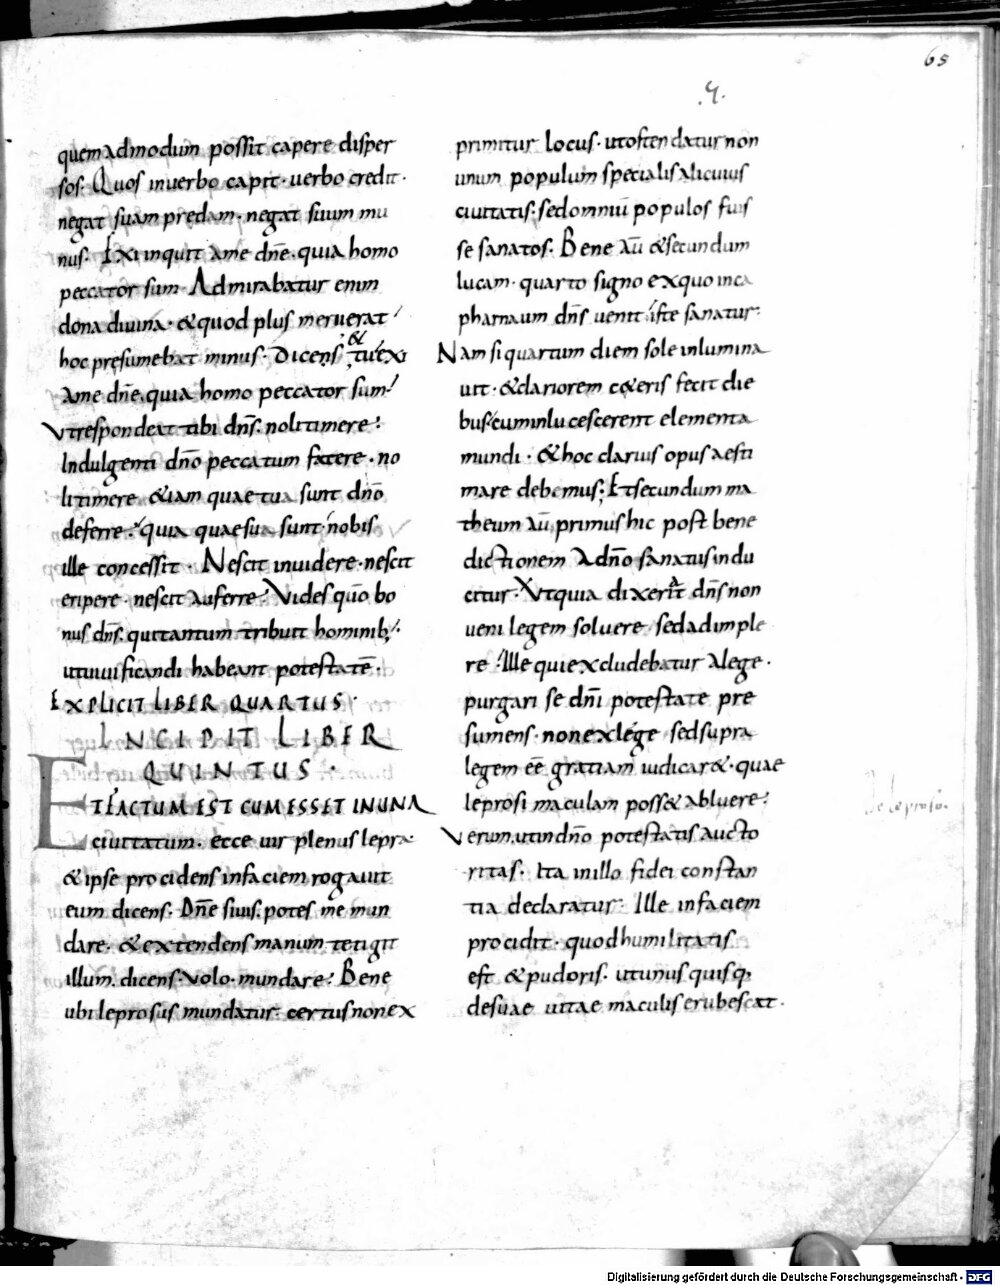 65
.4.
quemadmodum possit capere disper
sos. Quos inuerbo capit · uerbo credit ·
negat suam predam · negat suum mu
nus. Exi inquit ame dn̄e · quia homo
peccator sum · Admirabatur enim
dona diuina · & quod plus meruerat
hoc presumebat minus · Dicens & tu exi
Ame dn̄e · quia homo peccator sum
Ut respondeat tibi dn̄s · noli timere
Indulgenti dn̄o peccatum fatere · no
li timere &iam quae tua sunt dn̄o
deferre · quia quae sua sunt nobis
ille concessit · Nescit inuidere · nescit
eripere · nescit auferre · Vides quō bo
nus dn̄s · qui tantum tribuit hominib;
ut uiuificandi habeant potestatē ·
EXPLICIT LIBER QUARTUS ·
INCIPIT LIBER
QUINTUS ·
ET FACTUM EST CUM ESSET IN UNA
ciuitatum · ecce uir plenus lepra
& ipse procidens infaciem rogauit
eum dicens · Dn̄e siuis · potes me mun
dare · & extendens manum tetigit
illum · dicens · Volo · mundare · Bene
ubi leprosus mundatur · certus non ex
primitur locus · ut ostendatur non
unum populum specialis alicuius
ciuitatis · sed omniū populos fuis
se sanatos · Bene aū & secundum
lucam · quarto signo exquo inca
pharnaum dn̄s uenit iste sanatur
Nam si quartum diem sole inlumina
uit · & clariorem c&eris fecit die
bus cum inlucescerent elementa
mundi · & hoc clarius opus aesti
mare debemus; Et secundum ma
theum aū primus hic post bene
dictionem Adn̄o sanatus indu
citur · Ut quia dixerat dn̄s non
ueni legem soluere · sed adimple
re · Ille qui excludebatur alege ·
purgari se dn̄i potestate pre
sumens · non exlége sed supra
legem eē gratiam iudicar& · quae
leprosi maculam poss& abluere
Verum · ut in dn̄o potestatis aucto
ritas · Ita inillo fidei constan
tia declaratur · Ille infaciem
procidit · quod humilitatis
est & pudoris · ut unus quisq;
de suae uitae maculis erubescat ·
De leproso.
Digitalisierung gefördert durch die Deutsche Forschungsgemeinschaft - DFG